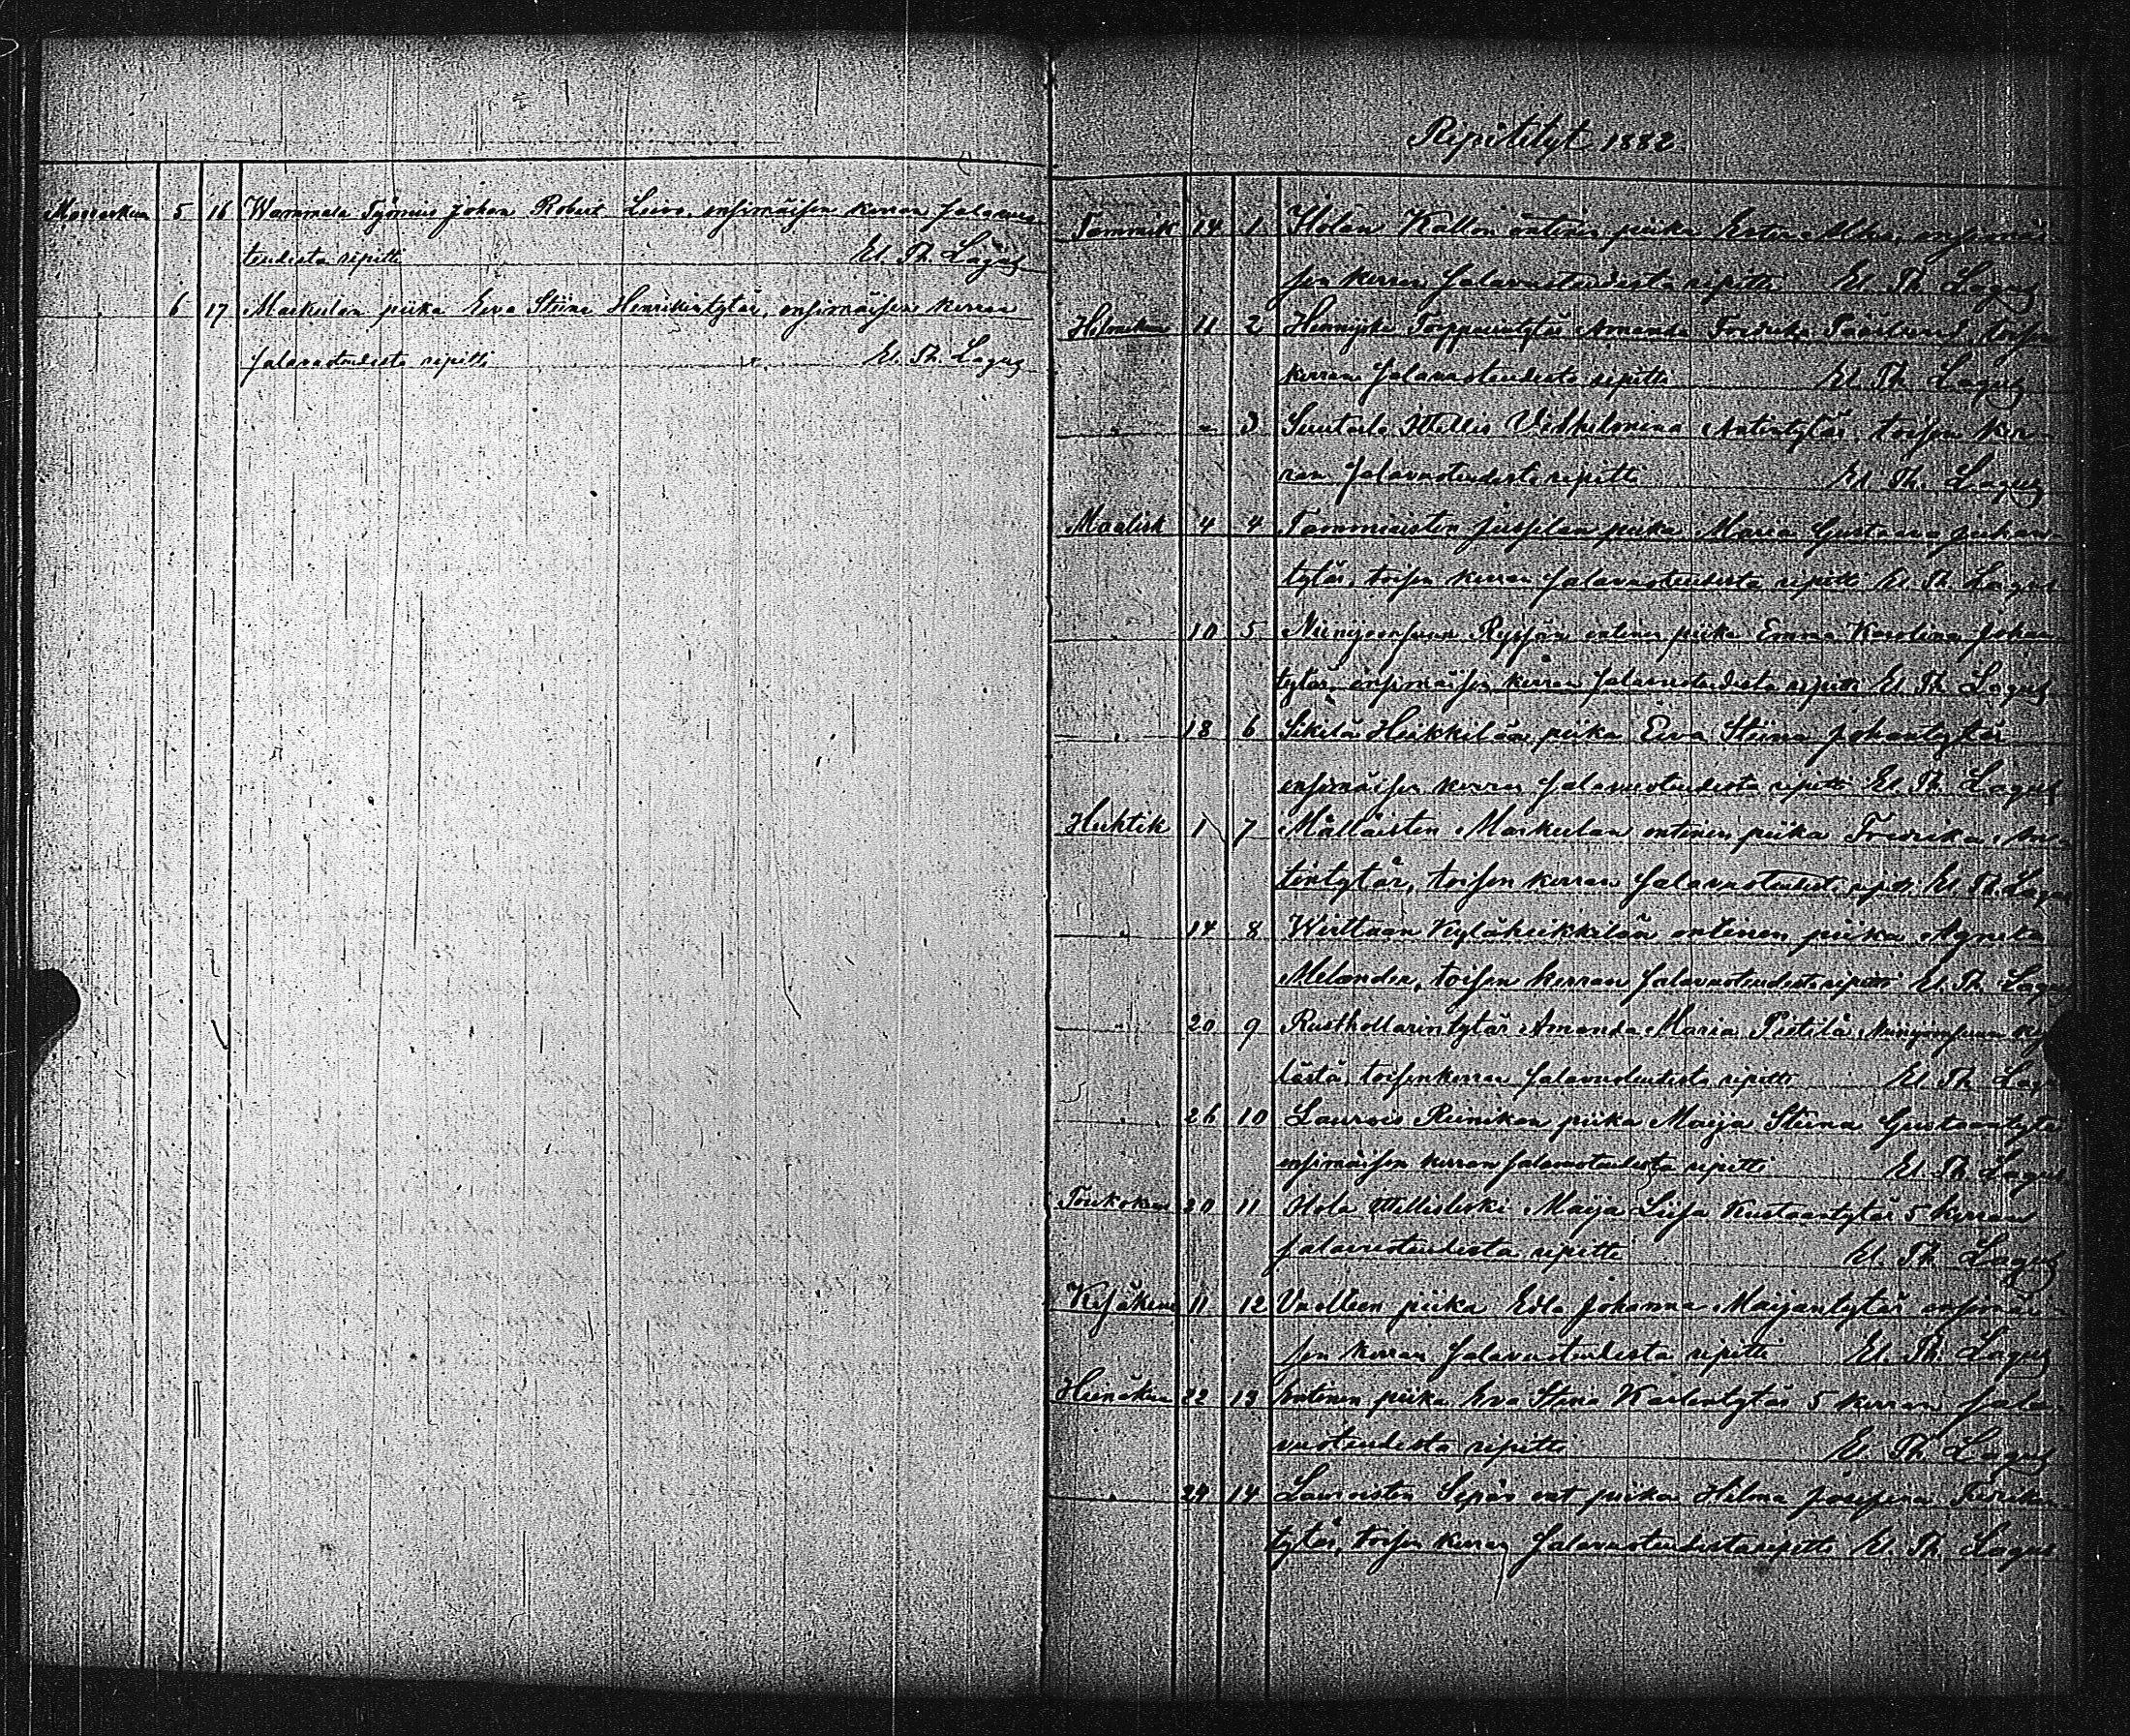 Marraskun 5 16 Wammala Työmies Johan Robert Leivo, ensimäisen kerran salavuo
teudesta ripitti El. Th. Lagus
" 6 17 Markulan piika Eva Stiina Henrikintytär, ensimäisen kerran
salavuoteudesta ripitti El. Th. Lagus
Ripitetyt 1882.
Tammik 14 1 Holan Kallon entinen piika Ester ensimäi
sen kerran salavuoteudesta ripitti El. Th. Lagus
Helmikun 11 2 Torpparintytär Amanda Fredrika toisen
kerran salavuoteudesta ripitti El. Th. Lagus
" " 3 Suutarla Itellis Vilhelmina Antintytär, toisen ker
ran salavuoteudesta ripitti El. Th. Lagus
Maalisk 4 4 Tammiaisten Jussilan piika Maria Gustaava Juhan
tytär, toisen kerran salavuoteudesta ripitti El. Th. Lagus
" 10 5 Niinijoensuun entinen piika Emma Karolina Johan
tytär, ensimäisen kerran salavuoteudesta ripitti El. Th. Lagus
" 18 6 Sikilä Heikkilän piika Eeva Stiina Johantytär
ensimäisen kerran salavuoteudesta ripitti El. Th. Lagus
Huhtik 1 7 Mälläisten Markulan entinen piika Fredrika An
tintytär, toisen kerran salavuoteudesta rip. El. Th. Lagus
" 14 8 Wirttaan Kyläheikkilän entinen piika Agneta
Melander, toisen kerran salavuoteudesta ripitti El. Th. Lagus
" 20 9 Rusthollarintytär Amanda Maria Pietilä Niinijoensuun ky
lästä, toisen kerran salavuoteudesta ripitti El. Th. Lagus
" 26 10 Laurois Reinikan piika Maija Stiina Gustaantytä
ensimäisen kerran salavuoteudesta ripitti El. Th. Lagus
Toukokun 20 11 Hola Itellisleski Maija Liisa Kustaantytär 5 kerran
salavuoteudesta ripitti El. Th. Lagus
Kesäkun 11 12 piika Edla Johanna Maijantytär ensimäi
sen kerran salavuoteudesta ripitti El. Th. Lagus
Heinäkun 22 13 Entinen piika Eva Stina Karlentytär 5 kerran sala
vuoteudesta ripitti El. Th. Lagus
" 24 14 Lauroisten Sepän ent piika Hilma Josefina
tytär, toisen kerran salavuoteudesta ripitti El. Th. Lagus